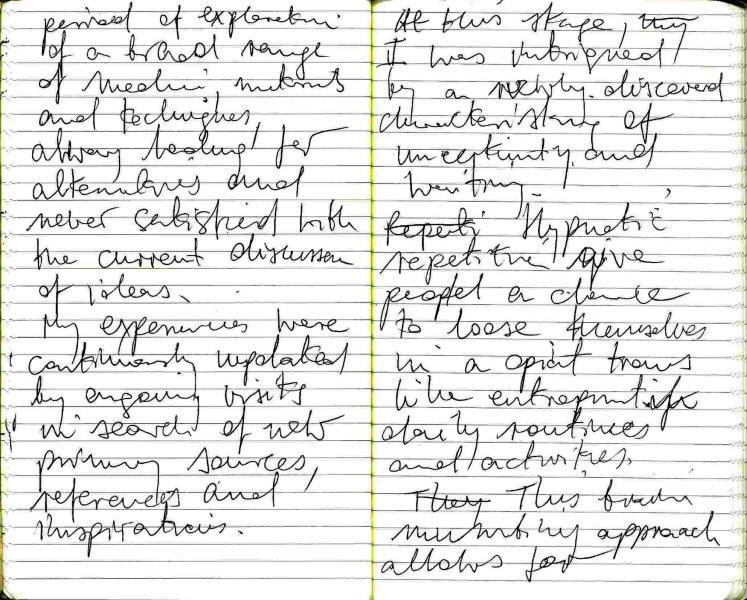 period of exploration
of a broad range
of media, 
and techniques,
always looking for
alternatives and
never satisfied with
the current discussion
of ideas.
My experiences were
continuously updated
by ongoing visits
in search of new
primary sources,
references and
inspirations.
At this stage, they
I was intrigued
by a newly discovered
of
uncertainty and
waiting.
Repeti Hypnotic
repetitive give
peopel a chance
to loose themselves
in a opiat trans
like
daily routines
and activities.
They This brain
numbing approach
allows for